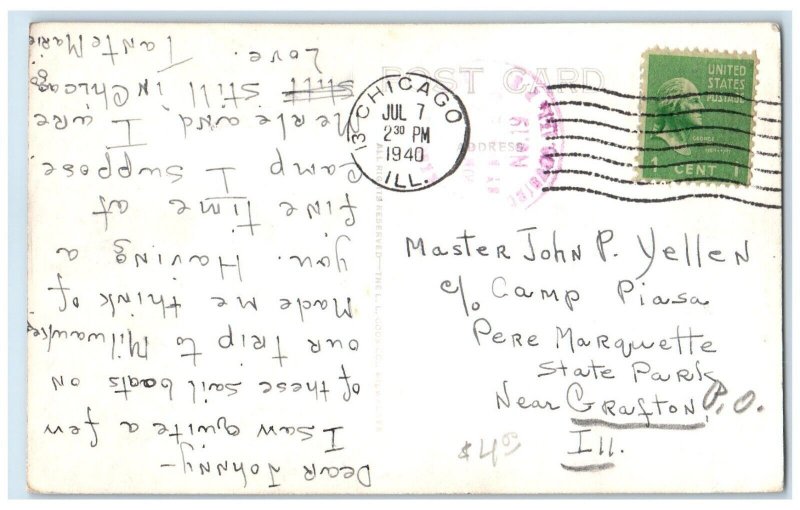 POST CARD
ADDRESS
CHICAGO
JUL 7
2 30 PM
1940
ILL.
UNITED
STATES
POSTAGE
1 CENT 1
Dear Johnny-
I saw quite a few
of these sail boats on
our trip to Milwaukee
Made me think of
you. Having a
fine time at
Camp I suppose
Merle and I are
still still in Chicago
Love.
Tante Marie
Master John P. Yellen
c/o Camp Piasa
Pere Marquette
State Park
Near Grafton, P.O.
Ill.